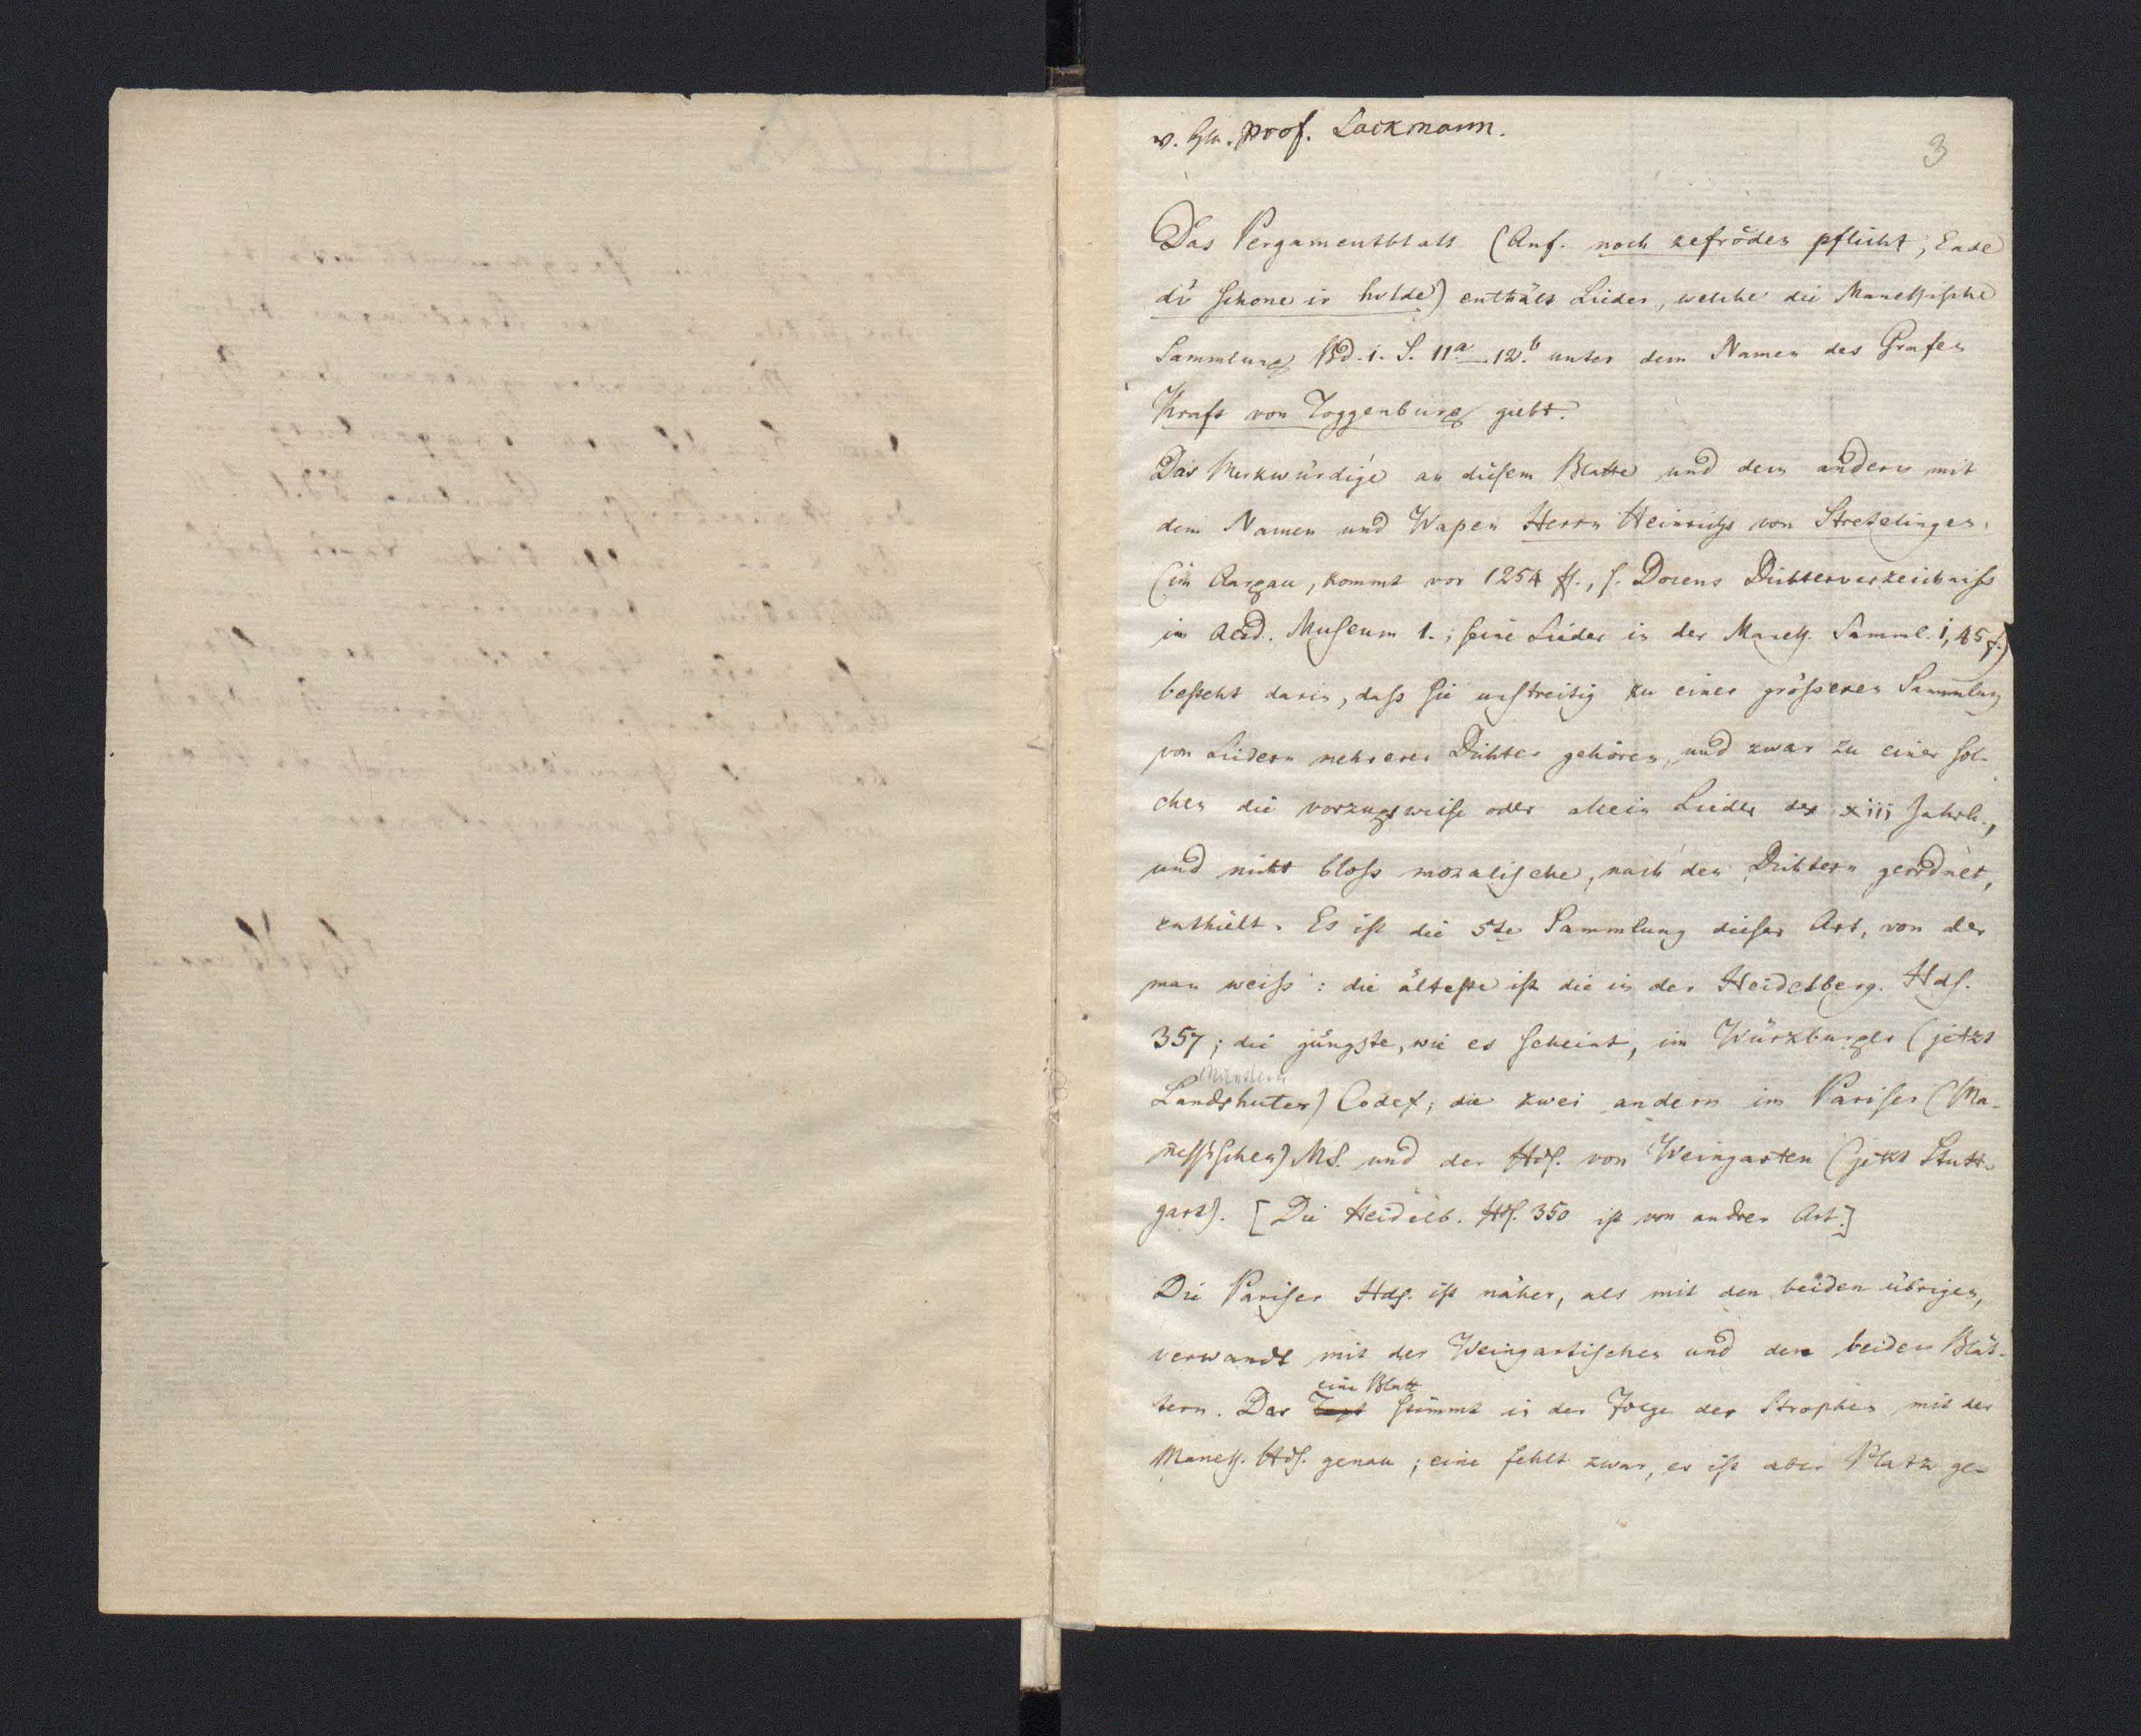 v. Hrn. Prof. Lackmann.
3
Das Pergamentblatt (Anf. noch zefröden pflicht, Ende
dú schone ir hulde) enthält Lieder, welche die Manessische
Sammlung Bd. 1. S. 11a–12.b unter dem Namen des Grafen
Kraft von Toggenburg giebt.
Das Merkwürdige an diesem Blatte und dem andern mit
dem Namen und Wapen Herrn Heinrichs von Stretelingen
(im Aargau, kommt vor 1254 ff., s. Docens Dichterverzeichniß
im altd. Museum 1.; seine Lieder in der Maneß. Samml. 1, 45 f.)
besteht darin, daß sie unstreitig zu einer größeren Sammlung
von Liedern mehrerer Dichter gehören, und zwar zu einer sol-
chen die vorzugsweise oder allein Lieder des xiii Jahrh.,
und nicht bloß moralische, nach den Dichtern geordnet,
enthielt. Es ist die 5te Sammlung dieser Art, von der
man weiß: die älteste ist die in der Heidelberg. Hds.
357; die jüngste, wie es scheint, im Würzburger (jetzt
Münchner
Landshuter) Codex; die zwei andern im Pariser (Ma-
neßischen) MS. und der Hds. von Weingarten (jetzt Stutt-
gart). [Die Heidelb. Hds. 350 ist von andrer Art.]
Die Pariser Hds. ist näher, als mit den beiden übrigen,
verwandt mit der Weingartischen und den beiden Blät-
eine Blatt
tern. Das Text stimmt in der Folge der Strophen mit der
Maneß. Hds. genau; eine fehlt zwar, es ist aber Platz ge-